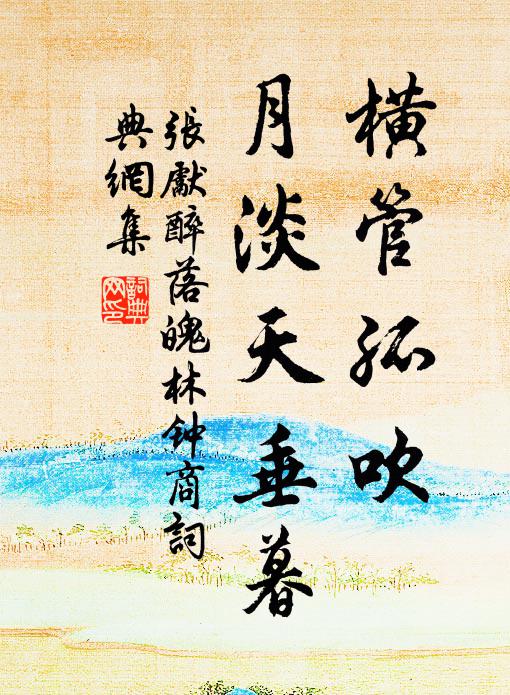 橫管孤吹
月淡天垂暮
張獻醉落魄林钟商詞
典網集
詞典网印